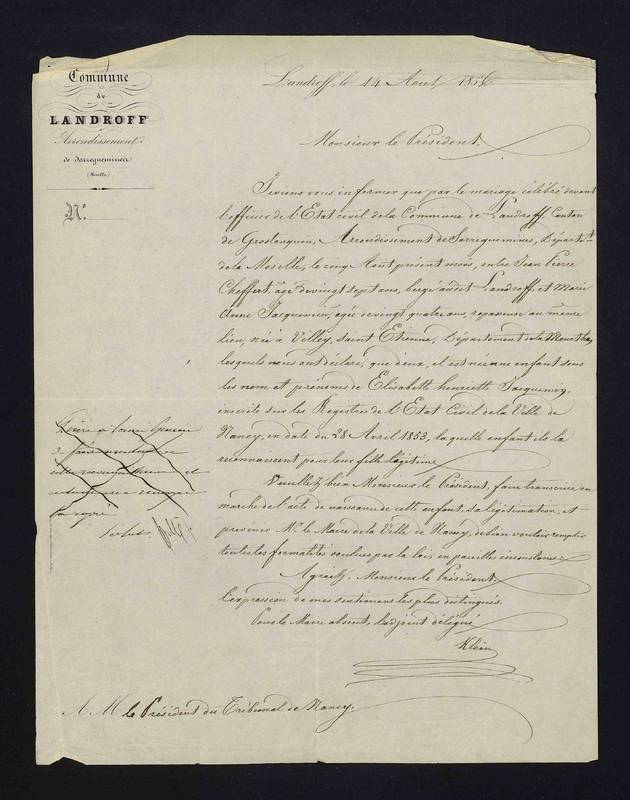 Commune
de
LANDROFF
Arrondissement
de Sarreguemines
(Moselle)
N°.
Landroff, le 14 Aout 1856
Monsieur le Président.
Je viens vous informer que par le mariage célébré devant
l'officier de l'Etat civil de la Commune de Landroff, Canton
de Grostenquin, Arrondissement de Sarreguemines, Départt
de la Moselle, le cinq Aout présent mois, entre Jean Pierre
Cheffert, âgé de vingt sept ans, bergé au dit Landroff, et Marie
Anne Jacquemin, âgée de vingt quatre ans, repasseuse au même
lieu, née à Villey, Saint Etienne, Département de la Meurthe,
lesquels nous ont déclaré, que d'eux, il est né une enfant sous
les nom et prénoms de Elisabeth henriette Jacquemin,
inscrite sur les Registres de l'Etat Civil de la Ville de
Nancy, en date du 28 Avril 1853, la quelle enfant ils la
reconnaissent pour leur fille légitime
Veuillez bien Monsieur le Président, faire transcrire en
marche de l'acte de naissance de cette enfant, sa légitimation, et
prevenir Mr. le Maire de la Ville de Nancy, de bien vouloir remplir
toutes les formalités voulues par la loi, en pareille circonstance
Agréez, Monsieur le Président,
l'expression de mes sentimens les plus distingués.
Pour le Maire absent, l'adjoint délégué
Klein
A M le Président du Tribunal de Nancy.